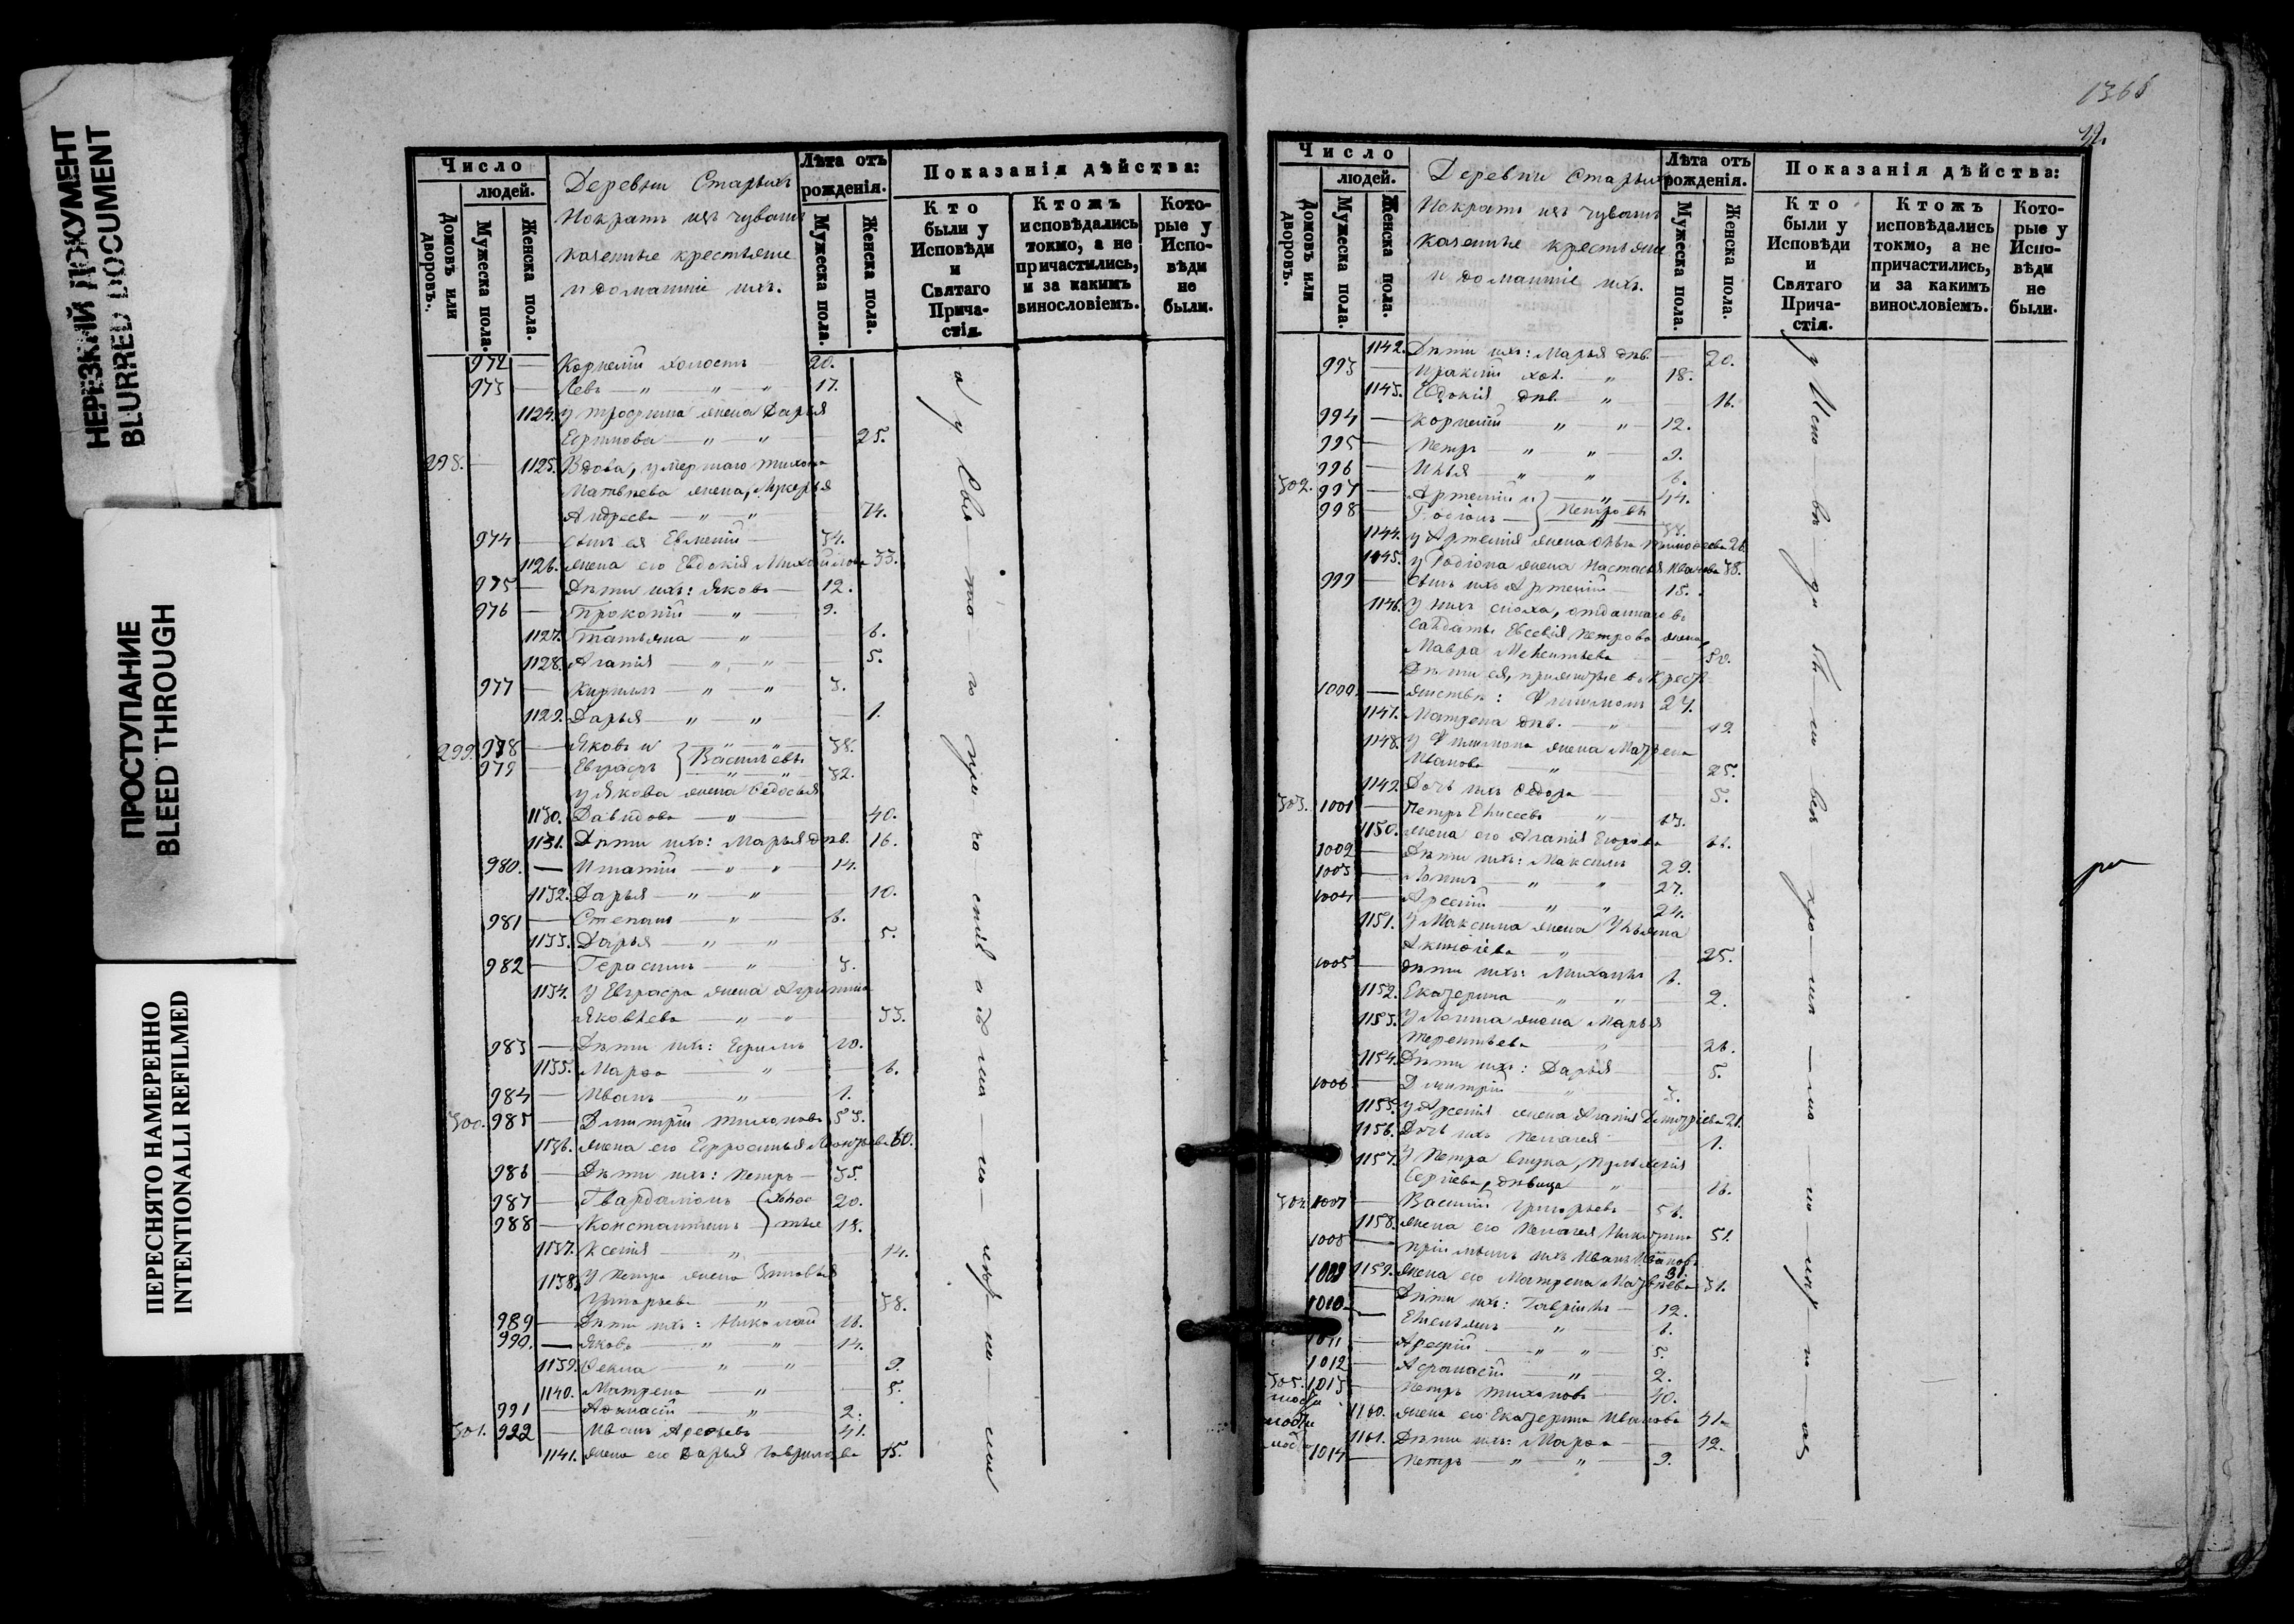 НЕРЕЗКИЙ ДОКУМЕНТ
BLURRED DOCUMENT
ПРОСТУПАНИЕ
BLEED THROUGH
ПЕРЕСНЯТО НАМЕРЕННО
INTENTIONALLI REFILMED
Число
людей.
Домовъ или дворовъ.
Мужеска пола.
Женска пола.
Деревни Старыхъ
изъ чувашъ
казенные крестьяне
и домашніе ихъ.
Лѣта отъ
рожденія.
Мужеска пола.
Женска пола.
Показанія дѣйства:
Кто
были у
Исповѣди
и
Святаго
Прича-
стія.
Ктожъ
исповѣдались
токмо, а не
причастились,
и за какимъ
винословіемъ.
Кото-
рые у
Испо-
вѣди
не
были.
972 — Корнелій холостъ — 20.
973 — Левъ — „ — „ — „ 17.
1124. у Трофима жена Дарья
— „ — „ — 25.
298. — 1125. Вдова, умершаго Тихона
Матвѣева жена,
Андреева — „ — „ — 74.
974 — сынъ ея Евгеній — 34.
1126. жена его Евдокія Михайлова 33.
975 — Дѣти ихъ: Яковъ — 12.
976 — Прокопій — „ — 9.
1127. Татьяна — „ 6.
1128. Агапія — „ — „ — 5.
977 — Кириллъ — „ — „ 3.
1129. Дарья — „ — „ — 1.
299. 978 — Яковъ и — „ — „ — 38.
979 — Евграфъ } Васильевы 32.
у Якова жена Ѳедосья
1130. Давидова — „ — 40.
1131. Дѣти ихъ: Марья дѣв. 16.
980. — Игнатій — „ — „ 14.
1132. Дарья — „ — „ — 10.
981 — Степанъ — „ — 6.
1133. Дарья — „ — „ 5.
982 — Герасимъ — „ — 3.
1134. у Евграфа жена Агрипина
Яковлева — „ — „ — 33.
983 — Дѣти ихъ: Ефимъ 10.
1135. Марѳа — „ — 6.
984 — Иванъ — „ — 1.
300. 985 — Дмитрій Тихоновъ 53.
1136. жена его Ефросинья 60.
986 — Дѣти ихъ: Петръ — 35.
987 — { Холос 20.
988 — Константинъ } тые 18.
1137. Ксенія — „ — 14.
1138. у Петра жена Зиновья
Григорьева — „ — 38.
989 — Дѣти ихъ: Николай 16.
990. — Яковъ — „ — „ 14.
1139. Ѳекла — „ — „ 9.
1140. Матрена — „ — 5.
991 — Аѳанасій — „ — 2.
301. 992 — Иванъ Арефьевъ — 41.
1141. жена его Дарья Гаврилова 35.
1368
Число
людей.
Домовъ или дворовъ.
Мужеска пола.
Женска пола.
Деревни Старыхъ
изъ чувашъ
казенные крестьяне
и домашніе ихъ.
Лѣта отъ
рожденія.
Мужеска пола.
Женска пола.
Показанія дѣйства:
Кто
были у
Исповѣди
и
Святаго
Прича-
стія.
Ктожъ
исповѣдались
токмо, а не
причастились,
и за какимъ
винословіемъ.
Кото-
рые у
Испо-
вѣди
не
были.
1142. Дѣти ихъ: Марья дѣв. — 20.
993 — Ираклій хол. — „ 18.
1143. Евдокія дѣв. „ 16.
994 — Корнелій — „ — „ — 12.
995 — Петръ — „ — „ — 9.
996 — Илья „ „ 6.
302. 997 — Артемій и } — „ — 44.
998 — Родіонъ — } Петровы 38.
1144. у Артемія жена Тимоѳеева 26.
1145. у Родіона жена Настасья Иванова 38.
999 — Сынъ ихъ Артемій — 15.
1146. у нихъ сноха, отданнаго въ
салдаты Евсевія Петрова жена,
Мавра Мелентьева — 50.
Дѣти ея,
1000. — : Филимонъ 27.
1147. Матрена дѣв. — „ 19.
1148. у Филимона жена Матрена
Иванова „ 25.
1149. Дочь ихъ Ѳедора — 5.
303. 1001 — Петръ Елисеевъ „ — 63.
1150. жена его Агапія Егорова 66.
1002 — Дѣти ихъ: Максимъ 29.
1003 — Логинъ — „ „ 27.
1004 — Арсеній — „ „ 24.
1151. у Максима жена Ульяна
„ 25.
1005 — Дѣти ихъ: Михаилъ 6.
1152. Екатерина — „ „ 2.
1153. у Логина жена Марья
Терентьева „ 26.
1154. Дѣти ихъ: Дарья — 5.
1006 — Дмитрій „ 3.
1155. у Арсенія жена Агапія Дмитріева 21.
1156. Дочь ихъ Пелагея — 1.
1157. у Петра внука,
Сергѣева, дѣвица „ 16.
304. 1007 — Василій Григорьевъ — 56.
1158. жена его Пелагея 51.
1008 — пріемышъ ихъ Иванъ Ивановъ 31.
1159. жена его Матрена Матвѣева 31.
1009 Дѣти ихъ: Гавріилъ — 12.
1010 — „ — 6.
1011 — Арефій — „ „ 5.
1012 — Афонасій — „ — 2.
305. 1013 — Петръ Тихоновъ — 40.
1160. жена его Екатерина Иванова 41.
1161. Дѣти ихъ: Марѳа — 12.
1014 — Петръ — „ — „ — 9.